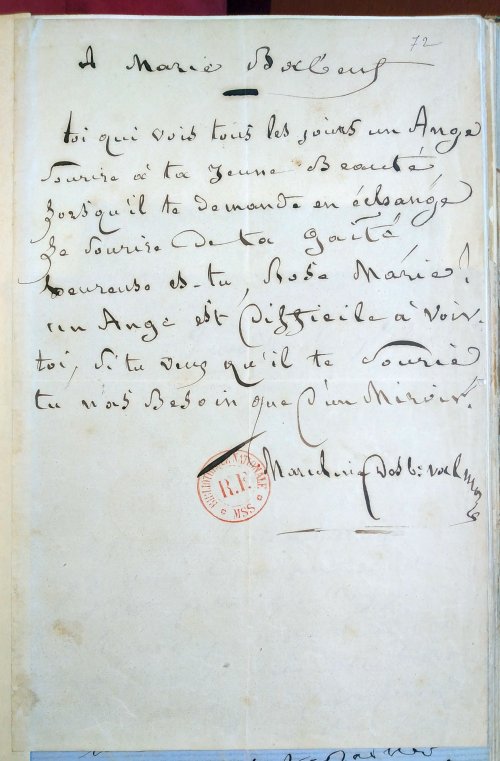 72
A Marie
toi qui vois tous les jours un Ange
Sourire à ta Jeune Beauté,
Lorsqu'il te demande en échange
Le Sourire de ta Gaîté,
heureuse es-tu, Rose Marie!
un Ange est Difficile à voir.
toi, si tu veux qu'il te Sourie
tu n'as Besoin que d'un Miroir.
Marceline Desb: valmore
BIBLIOTHÈQUE NATIONALE
R.F.
MSS